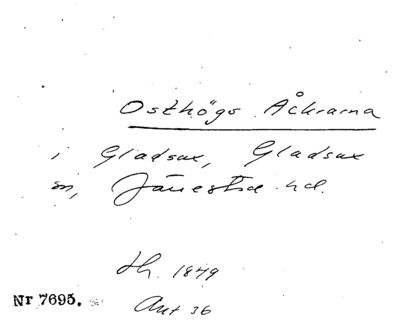 Osthögs Åckrarna
i Gladsax, Gladsax
sn, Järrestad hd.
Lh. 1849
Nr 7695.
Akt 36